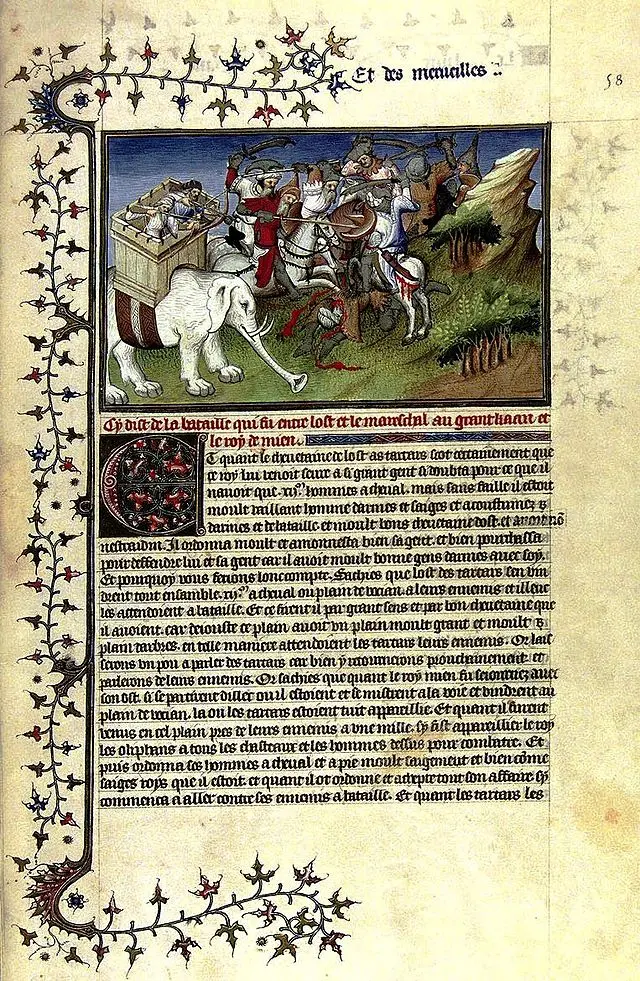 Et des merueilles
58
Cy dist de la bataille qui fu entre lost et le mareschal au grant kaan et
le roy de mien.
Et quant le cheuetaine de lost as tartars scot certainement que
ce roy lui venoit seure a si grant gent si doubta pour ce que il
nauoit que .xij.m hommes a cheual. mais sans faille il estoit
moult vaillant homme darmes et saiges et acoustumez
darmes et de bataille et moult bons cheuetaine dost. et auoit nō
nestradin. Il ordonna moult et amonnesta bien sa gent. et bien pourchassa
pour deffendre lui et sa gent car il auoit moult bonne gens darmes auec soy.
Et pourquoy vous ferons loncompte. Sachies que lost des tartars sen vin
drent tout ensamble .xij.m a cheual ou plain de vocian. a leurs ennemis et illeuc
les attendoient a bataille. Et ce firent il par grant sens et par bon cheuetaine que
il auoient. car deiouste ce plain auoit vn plain moult grant et moult
plain darbres. en telle maniere attendoient les tartars leurs ennemis. Or lais
serons vn pou a parler des tartars car bien y retournerons prouchainement. et
parlerons de leurs ennemis. Or sachies que quant le roy mien fu seiournez auec
son ost. si se partirent dillec ou il estoient et se mistrent a la voie et vindrent au
plain de vocian. la ou les tartars estoient tuit appareillie. Et quant il furent
venus en cel plain pres de leurs ennemis a vne mille. sy fist appareillier le roy
les oliphans a tous les chasteaux et les hommes dessus pour combatre. Et
puis ordonna ses hommes a cheual et a pie moult saigement et bien cōme
saiges roys que il estoit. et quant il ot ordonne et adrepte tout son affaire sy
commenca a aller contre ses ennemis a bataille. Et quant les tartars les